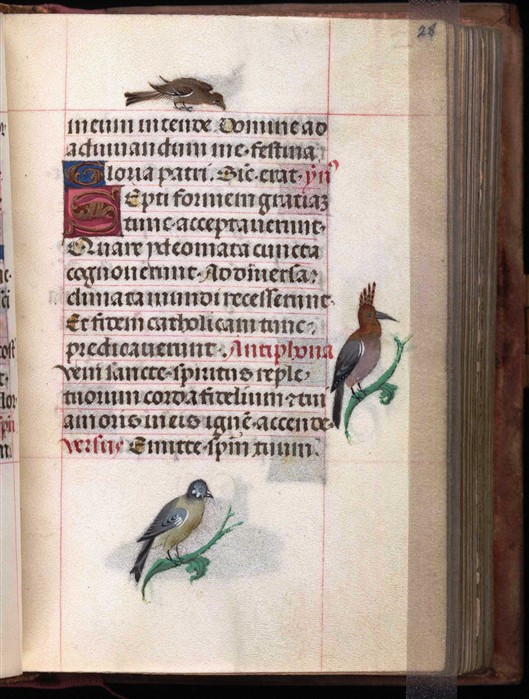 28
meum intende. Domine ad
adiuuandum me festina
Gloria patri. Sic erat. ỹm̃
Septiformem gratiaȝ
tunc acceptauerunt.
Quare ydeomata cuncta
cognouerunt. Ad diuersa
climata mundi recesserunt.
Et fidem catholicam tunc
predicauerunt. Antiphona
Veni sancte spiritus reple
tuorum corda fidelium ⁊ tui
amoris in eis ignẽ accende.
versus Emitte sp̃m tuum.